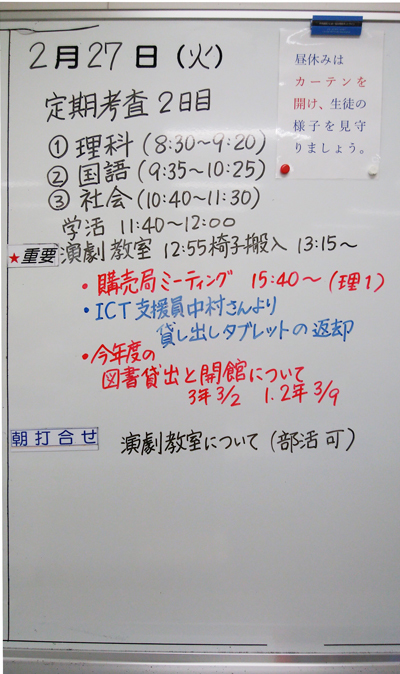 2月27日(火)
昼休みは
カーテンを
開け、生徒の
様子を見守
りましょう。
定期考査2日目
①理科(8:30〜9:20)
②国語(9:35〜10:25)
③社会(10:40〜11:30)
学活 11:40〜12:00
★重要 演劇教室 12:55椅子搬入 13:15〜
・購売局ミーティング 15:40〜(理1)
・ICT支援員中村さんより
貸し出しタブレットの返却
・今年度の
図書貸出と開館について
3年3/2 1.2年3/9
朝打合せ 演劇教室について(部活可)